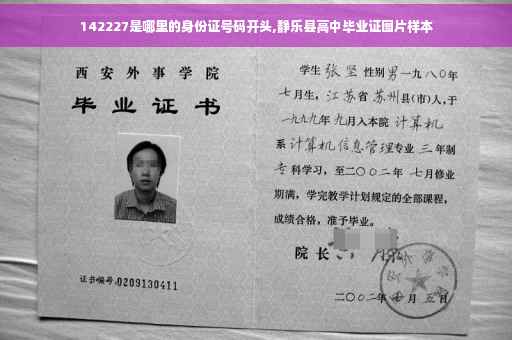 142227是哪里的身份证号码开头,静乐县高中毕业证图片样本
西安外事学院
毕业证书
证书编号:0209130411
学生 张坚 性别男一九八〇年
七月生，江苏省 苏州县(市)人，于
一九九九年 九月入本院 计算机
系 计算机信息管理专业 三 年制
专 科学习，至二〇〇二年 七月修业
期满，学完教学计划规定的全部课程，
成绩合格，准予毕业。
院长
二〇〇二年 七 月 五 日